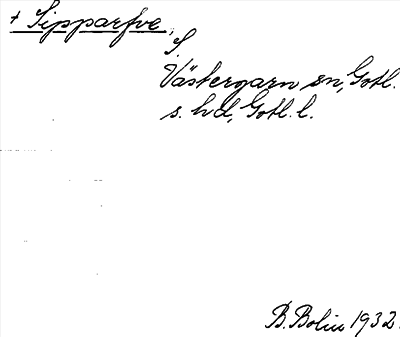 + Sipparfve,
S.
Västergarn sn, Gotl.
s. hd, Gotl. l.
B. Bolin 1932.